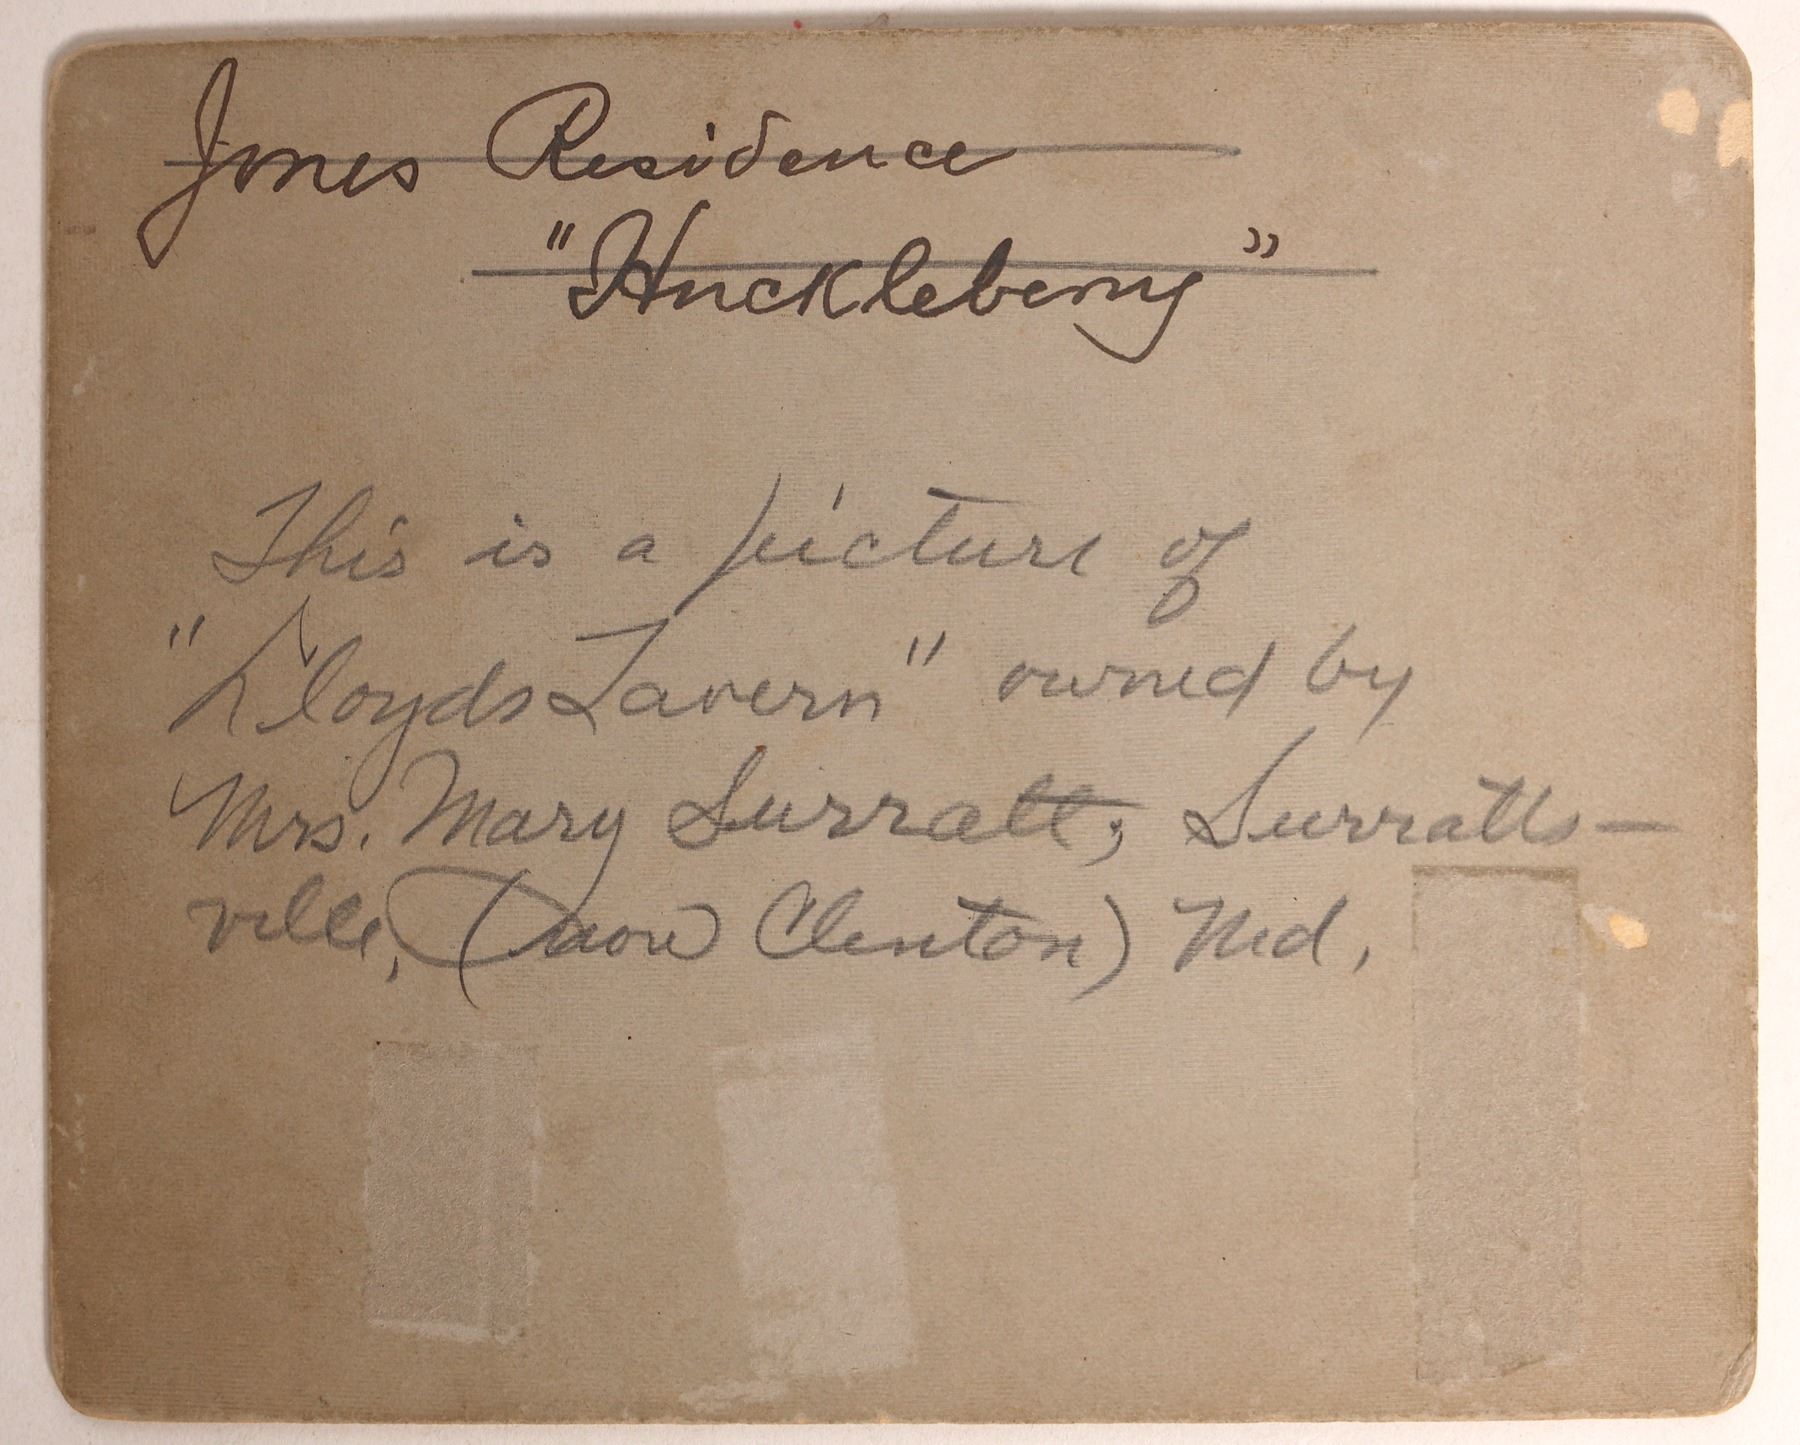 Jones Residence
"Huckleberry"
This is a picture of
"Lloyds Tavern" owned by
Mrs. Mary Surratt, Surratts-
ville, (now Clinton) Md.